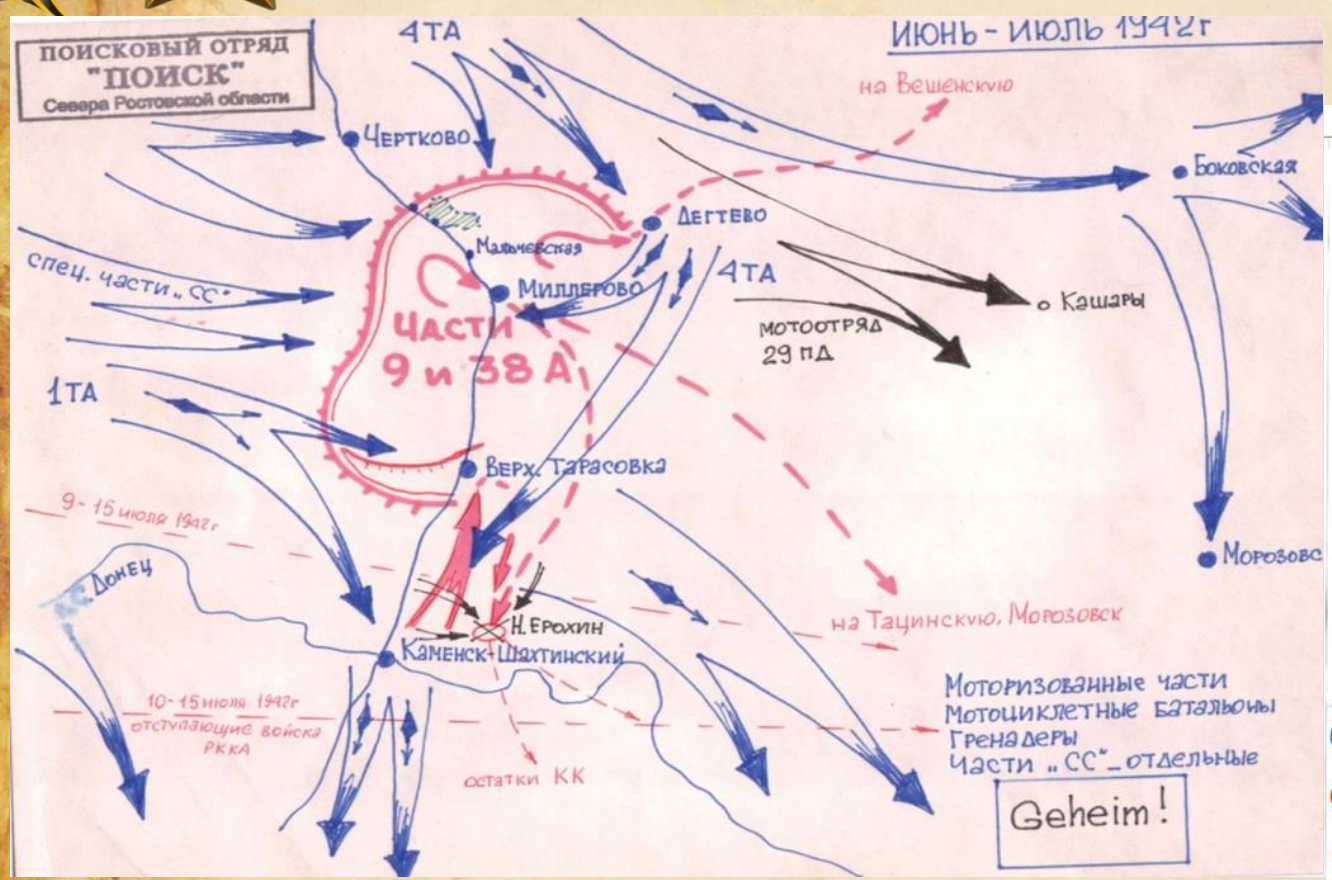 ПОИСКОВЫЙ ОТРЯД
"ПОИСК"
Севера Ростовской области
4ТА
ИЮНЬ - ИЮЛЬ 1942г
на Вешенскую
Чертково
Боковская
Дегтево
Мальчевская
спец. части „СС"
Миллерово
4ТА
Кашары
ЧАСТИ
9 и 38 А
МОТООТРЯД
29 ПД
1ТА
Верх. Тарасовка
9-15 июля 1942г
Донец
Морозовс
Н. Ерохин
на Тацинскую, Морозовск
Каменск-Шахтинский
10-15 июля 1942г
отступающие войска
РККА
остатки КК
Моторизованные части
Мотоциклетные батальоны
Гренадеры
Части „СС"_отдельные
Geheim!